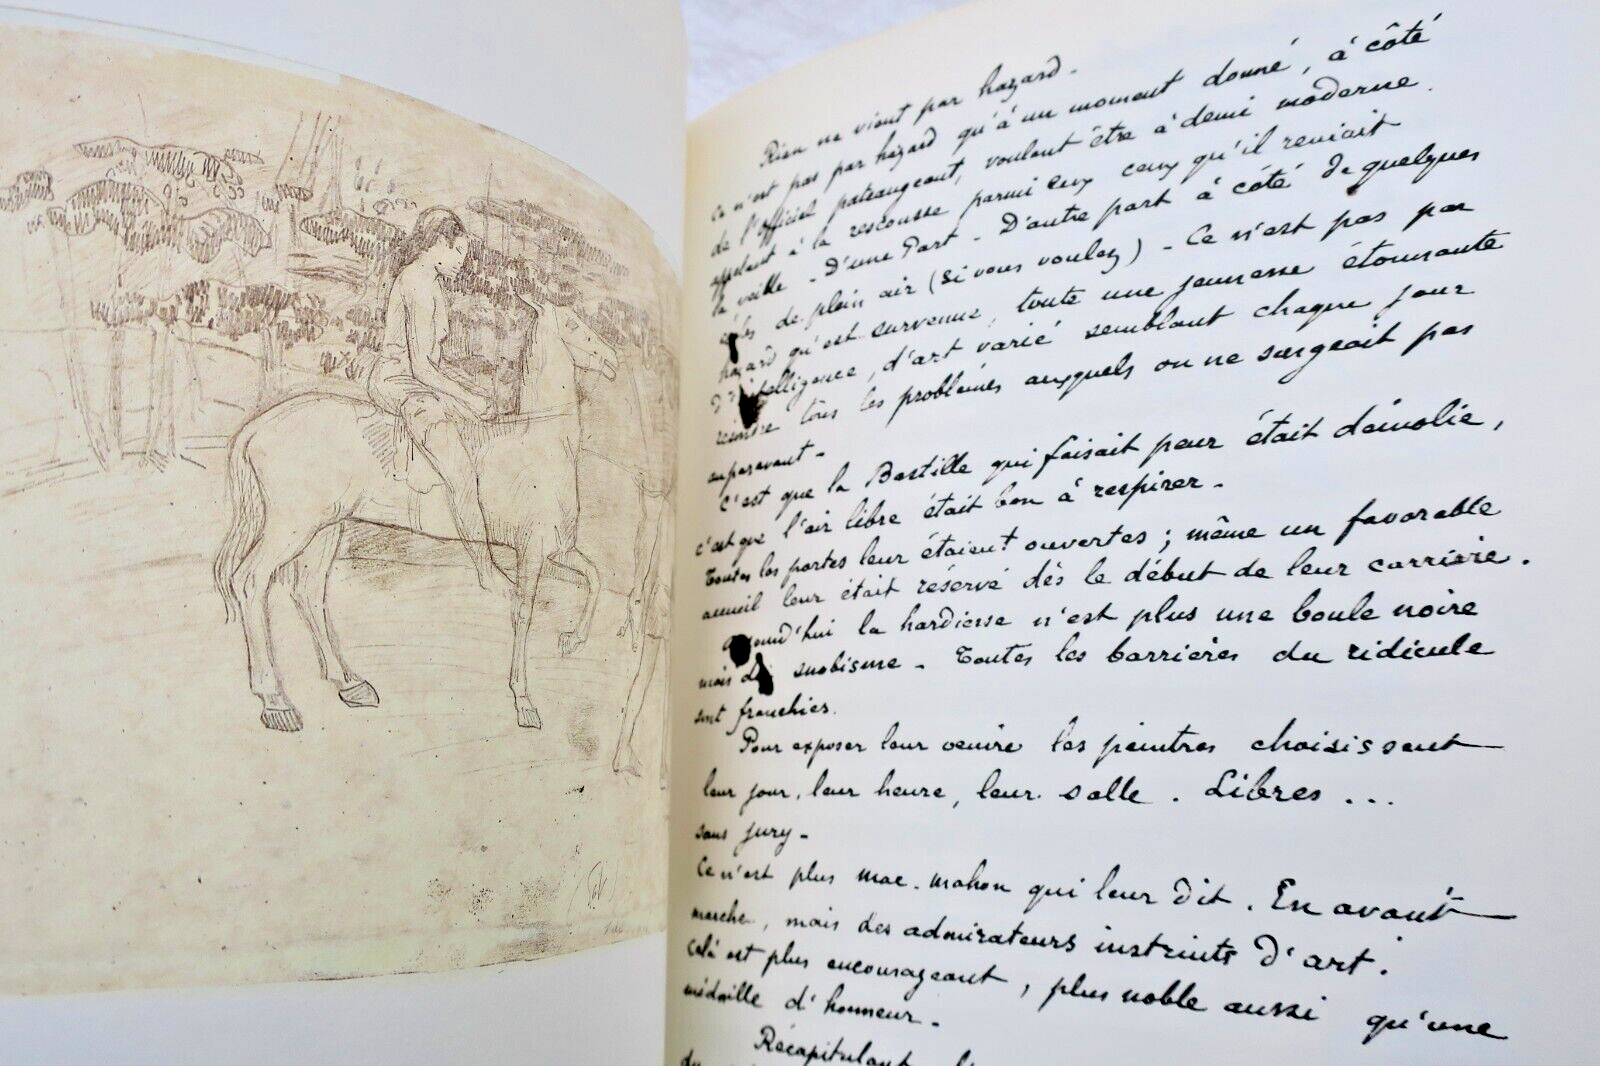 Rien ne vient par hazard -
Ce n'est pas par hazard qu'à un moment donné, à côté
de l'Officiel pateaugeant, voulant être à demi moderne
appelant à la rescousse parmi eux ceux qu'il reniait
la veille - D'une Part - D'autre part à côté de quelques
de plein air (si vous voulez) - Ce n'est pas par
hazard qu'est survenue, toute une jeunesse étonnante
d'intelligence, d'art varié semblant chaque jour
tous les problèmes auxquels on ne songeait pas
auparavant -
C'est que la Bastille qui faisait peur était démolie,
c'est que l'air libre était bon à respirer -
Toutes les portes leur étaient ouvertes ; même un favorable
accueil leur était réservé dès le début de leur carrière.
Aujourd'hui la hardiesse n'est plus une boule noire
mais du snobisme - Toutes les barrières du ridicule
sont franchies.
Pour exposer leur oeuvre les peintres choisissent
leur jour, leur heure, leur salle. Libres ...
sans jury -
Ce n'est plus mac-mahon qui leur dit. En avant
marche, mais des admirateurs instruits d'art.
Celà est plus encourageant, plus noble aussi qu'une
médaille d'honneur -
Récapitulant
du